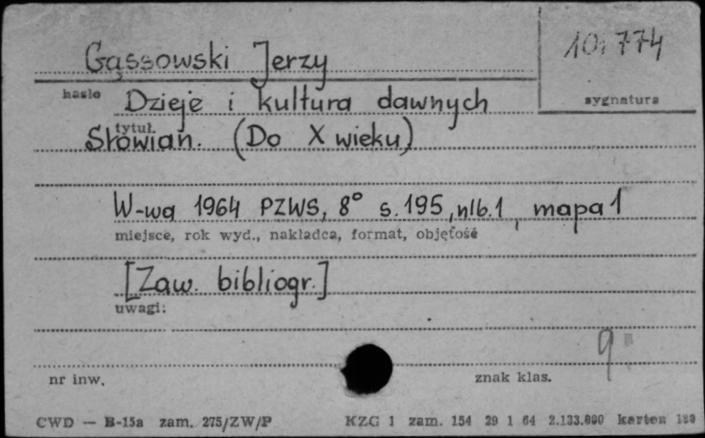 Gąssowski Jerzy
10.774
hasło Dzieje i kultura dawnych
sygnatura
tytuł.
Słowian. (Do X wieku)
W-wa 1964 PZWS, 8° s.195, nlb.1, mapa 1
miejsce, rok wyd., nakładca, format, objętość
[Zaw. bibliogr.]
uwagi:
9
nr inw.
znak klas.
CWD — B-15a zam. 275/ZW/P
KZG 1 zam. 154 29 1 64 2.133.000 kartek